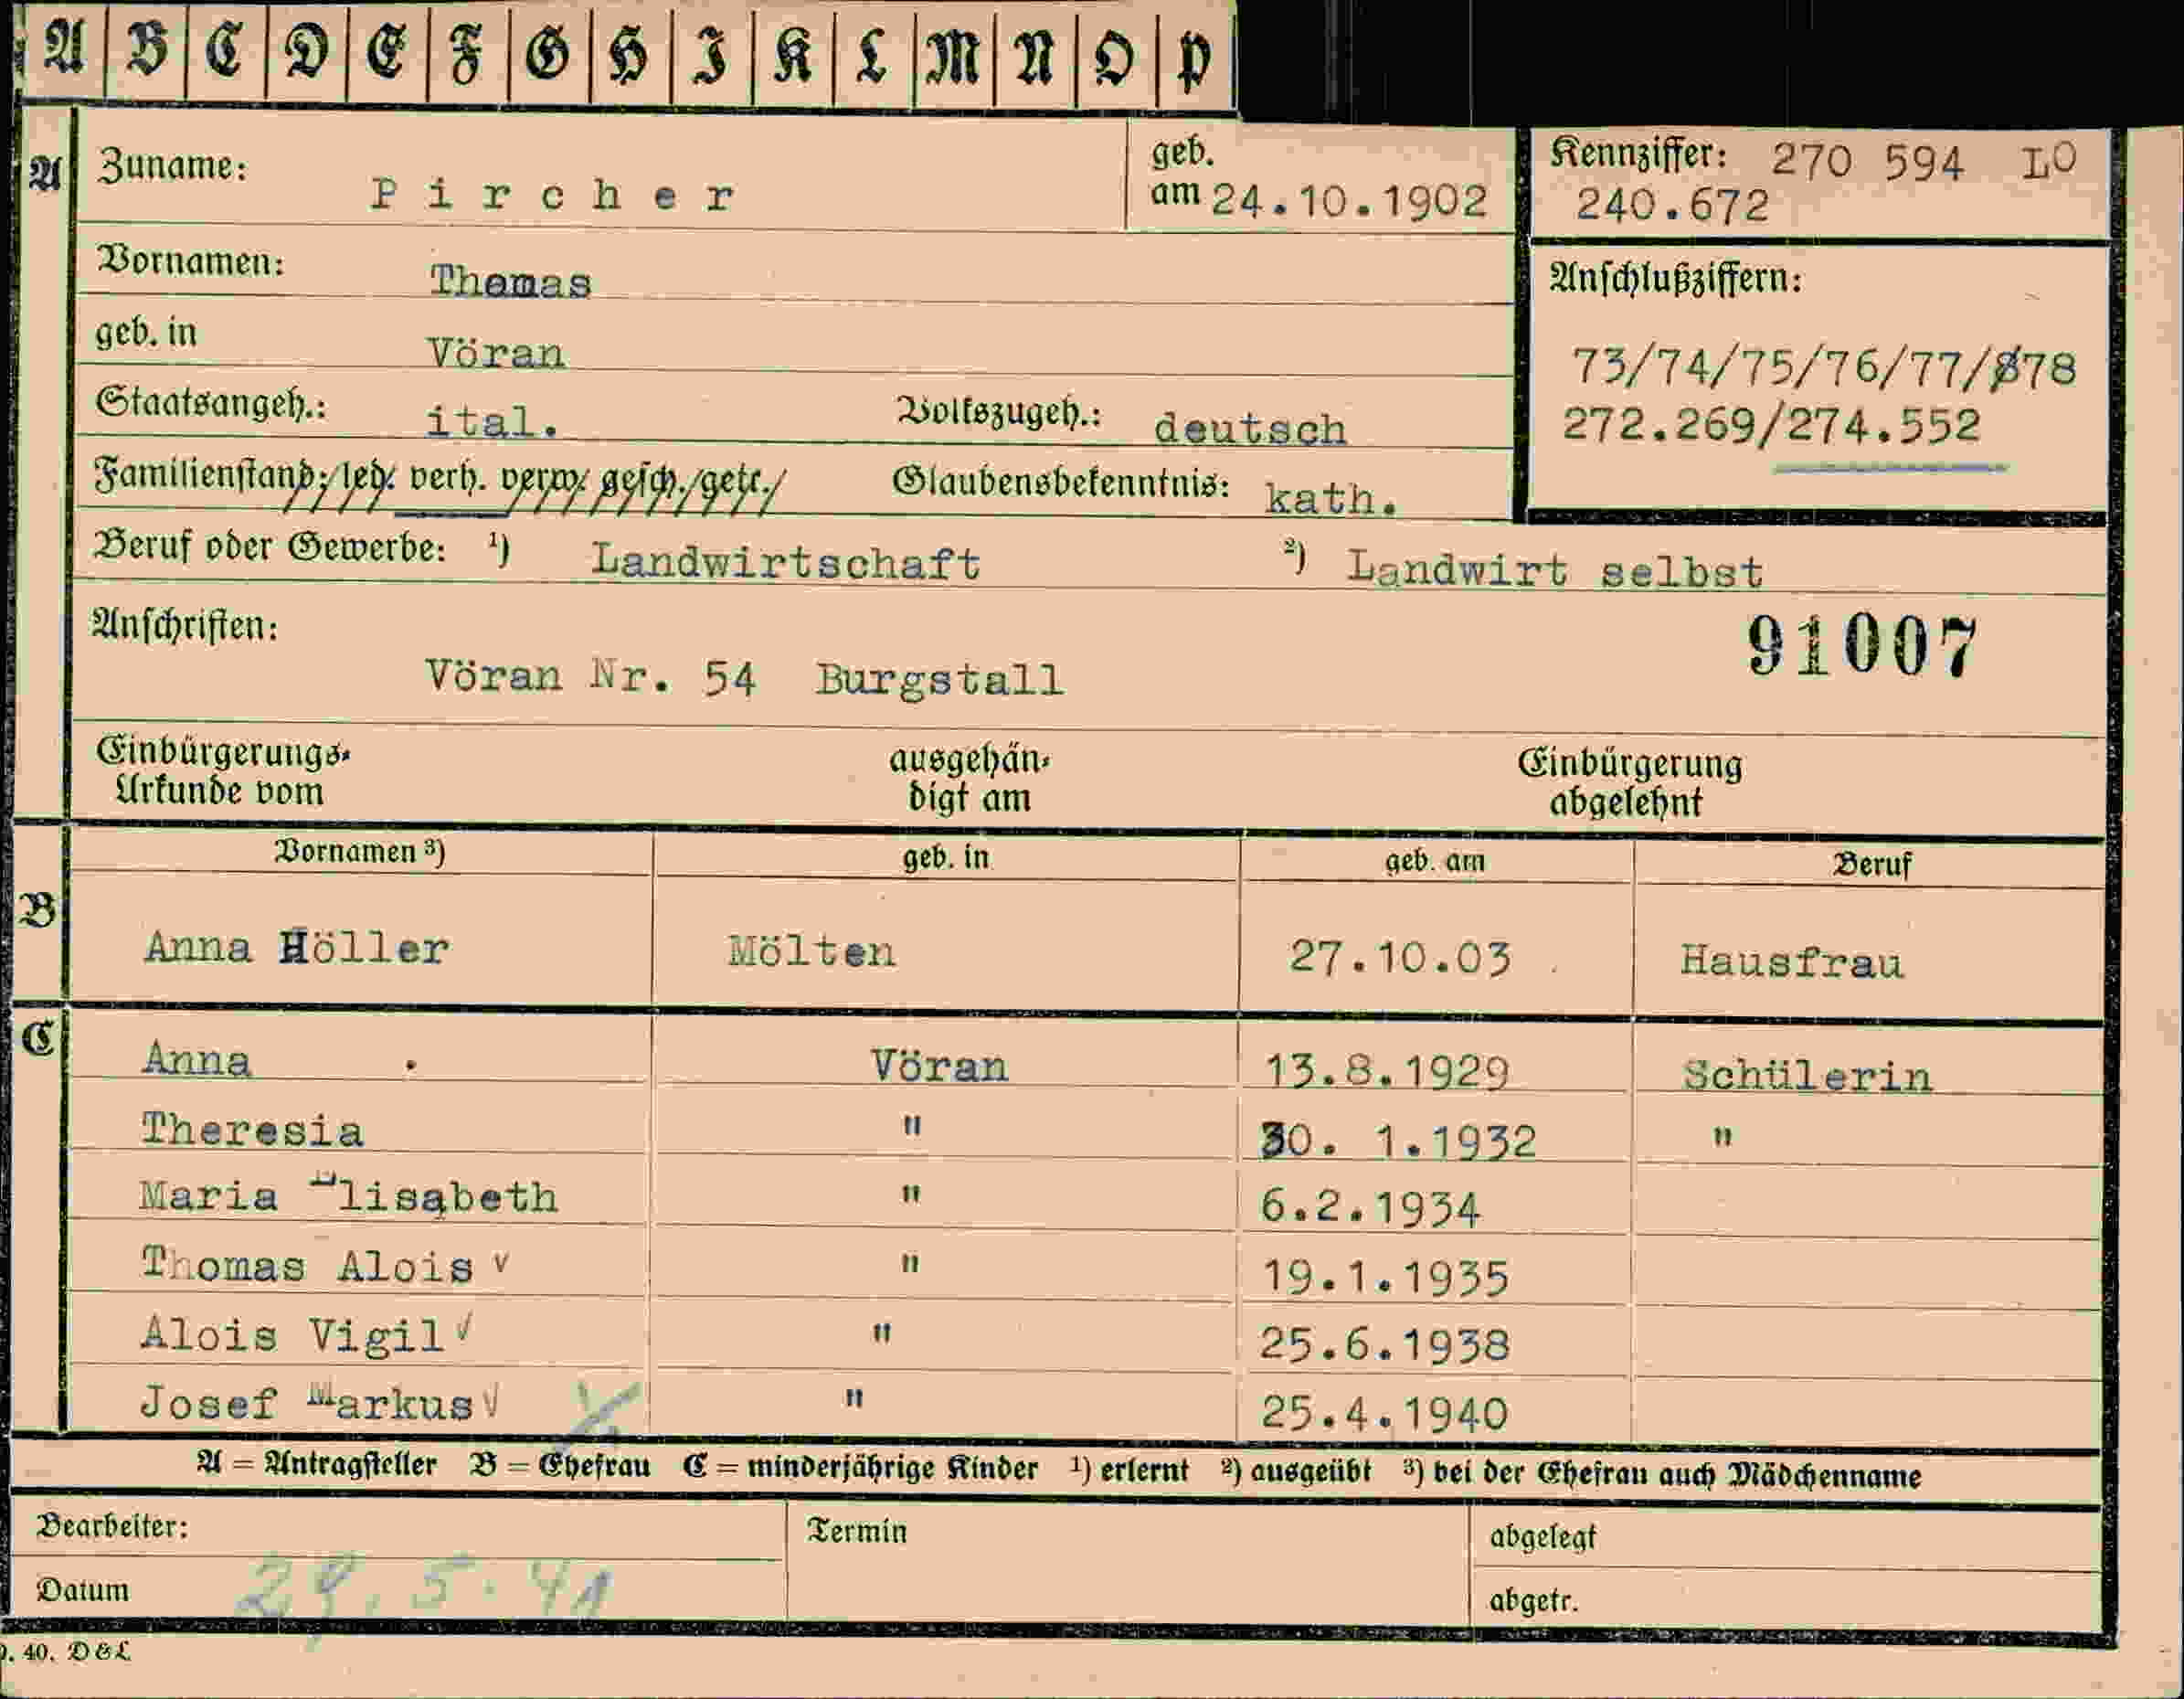 A B C D E F G H I K L M N O P
A Zuname: Pircher geb. am 24.10.1902 Kennziffer: 270 594 LO
240.672
Vornamen: Thomas Anschlußziffern:
geb. in Vöran 73/74/75/76/77/78
Staatsangeh.: ital. Volkszugeh.: deutsch 272.269/274.552
Familienstand: led. verh. verw. gesch. getr. Glaubensbekenntnis: kath.
Beruf oder Gewerbe: ¹) Landwirtschaft ²) Landwirt selbst
Anschriften: 91007
Vöran Nr. 54 Burgstall
Einbürgerungs- ausgehän- Einbürgerung
Urkunde vom digt am abgelehnt
Vornamen ³) geb. in geb. am Beruf
B Anna Höller Mölten 27.10.03 Hausfrau
C Anna Vöran 13.8.1929 Schülerin
Theresia " 30. 1.1932 "
Maria Elisabeth " 6.2.1934
Thomas Alois v " 19.1.1935
Alois Vigil √ " 25.6.1938
Josef Markus √ " 25.4.1940
A = Antragsteller B = Ehefrau C = minderjährige Kinder ¹) erlernt ²) ausgeübt ³) bei der Ehefrau auch Mädchenname
Bearbeiter: Termin abgelegt
Datum 29.5.41 abgetr.
. 40. D&L